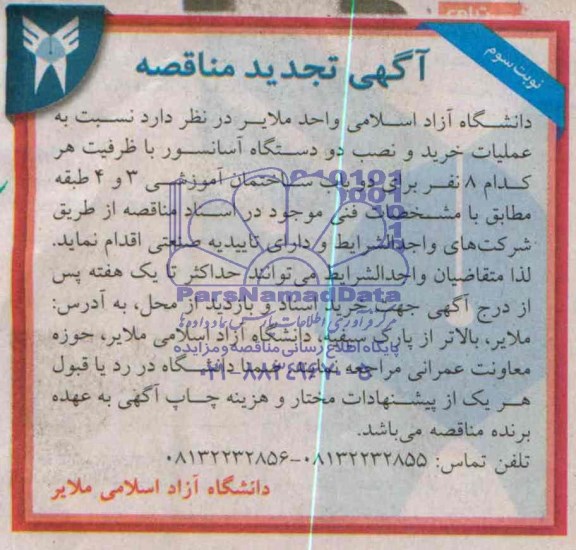 نوبت سوم
آگهی تجدید مناقصه
دانشگاه آزاد اسلامی واحد ملایر در نظر دارد نسبت به
عملیات خرید و نصب دو دستگاه آسانسور با ظرفیت هر
کدام ۸ نفر برای دو باب ساختمان آموزشی ۳ و ۴ طبقه
مطابق با مشخصات فنی موجود در اسناد مناقصه از طریق
شرکت‌های واجدالشرایط و دارای تاییدیه صنعتی اقدام نماید.
لذا متقاضیان واجدالشرایط می‌توانند حداکثر تا یک هفته پس
از درج آگهی جهت خرید اسناد و بازدید از محل، به آدرس:
ملایر، بالاتر از پارک سیفیه، دانشگاه آزاد اسلامی ملایر، حوزه
معاونت عمرانی مراجعه نمایند. ضمنا دانشگاه در رد یا قبول
هر یک از پیشنهادات مختار و هزینه چاپ آگهی به عهده
برنده مناقصه می‌باشد.
تلفن تماس: ۰۸۱۳۲۲۳۲۸۵۵-۰۸۱۳۲۲۳۲۸۵۶
دانشگاه آزاد اسلامی ملایر
ParsNamadData
پایگاه اطلاع رسانی مناقصه و مزایده